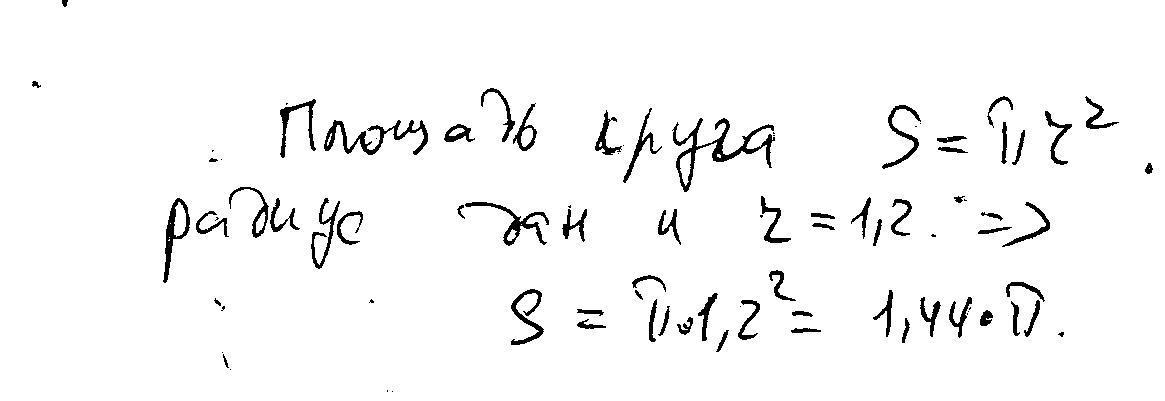 Площадь круга S = πr²
радиус дан и r = 1,2. =>
S = π•1,2² = 1,44•π.